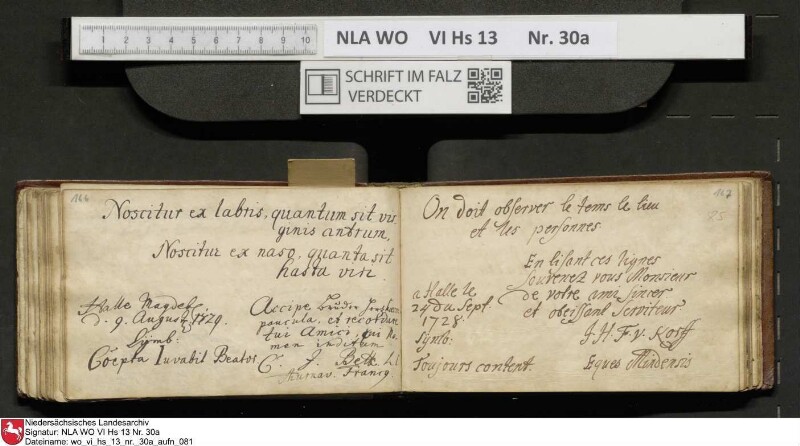 1 2 3 4 5 6 7 8 9 10
NLA WO VI Hs 13 Nr. 30a
SCHRIFT IM FALZ
VERDECKT
166
Noscitur ex labris, quantum sit vir
ginis antrum,
Noscitur ex naso, quanta sit
hasta viri.
Halle Magdeb.
d. 9. August. 1729.
Symb:
Coepta Iuvabit Beatos
Accipe
paucula, et recordare
tui Amici, qui No
men inditum
C. J.
Franco.
167
85
On doit observer le tems le lieu
et les personnes.
En lisant ces lignes
souvenez vous Monsieur
de votre ami sincer
et obeissent Serviteur
a Halle le
24 du Sept
1728.
Symb:
Toujours content.
J. H. F. v. Korff
Eques Mindensis
Niedersächsisches Landesarchiv
Signatur: NLA WO VI Hs 13 Nr. 30a
Dateiname: wo_vi_hs_13_nr._30a_aufn_081